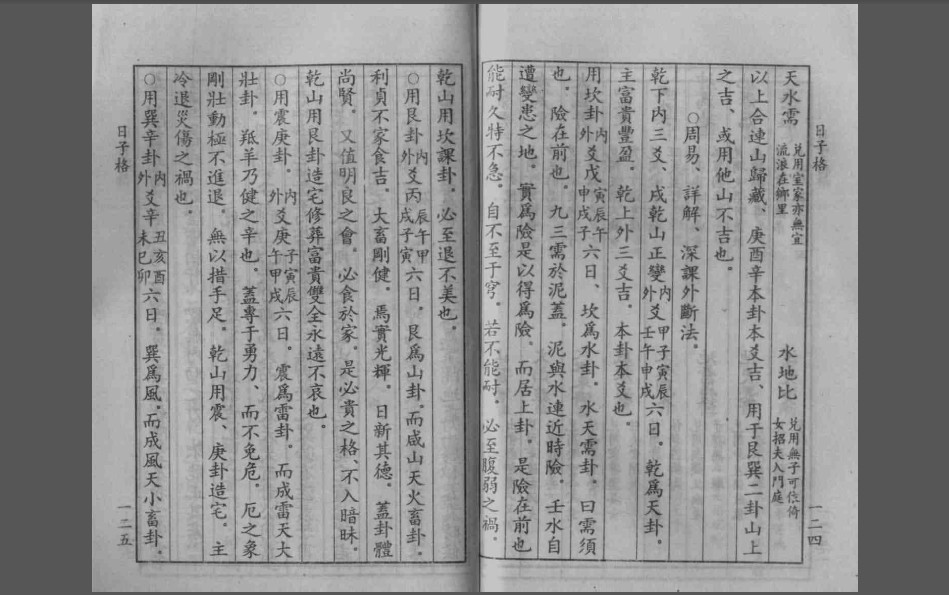 日子格
一二四
天水需 兑用室家亦無宜 流浪在鄉里 水地比 兑用無子可依倚 女招夫入門庭
以上合連山歸藏、庚酉辛本卦本爻吉、用于艮巽二卦山上
之吉、或用他山不吉也。
○周易、詳解、深課外斷法。
乾下內三爻、戌乾山正變內外爻甲子寅辰壬午申戌六日。乾為天卦。
主富貴豐盈。乾上外三爻吉。本卦本爻也。
用坎卦內外爻戊寅辰午申戌子六日、坎為水卦。水天需卦。曰需須
也。險在前也。九三需於泥蓋。泥與水連近時險。壬水自
遭變患之地。實為險是以得為險。而居上卦。是險在前也
能耐久特不急。自不至于窮。若不能耐。必至腹弱之禍。
乾山用坎課卦。必至退不美也。
○用艮卦內外爻丙辰午甲戌子寅六日。艮為山卦。而咸山天火畜卦。
利貞不家食吉。大畜剛健。焉實光輝。日新其德。蓋卦體
尚賢。又值明良之會。必食於家。是必貴之格、不入暗昧。
乾山用艮卦造宅修葬富貴雙全永遠不衰也。
○用震庚卦。內外爻庚子寅辰午甲戌六日。震為雷卦。而成雷天大
壯卦。羝羊乃健之辛也。蓋專于勇力、而不免危。厄之象
剛壯動極不進退。無以措手足。乾山用震、庚卦造宅。主
冷退災傷之禍也。
○用巽辛卦內外爻辛丑亥酉未巳卯六日。巽為風。而成風天小畜卦。
日子格
一二五